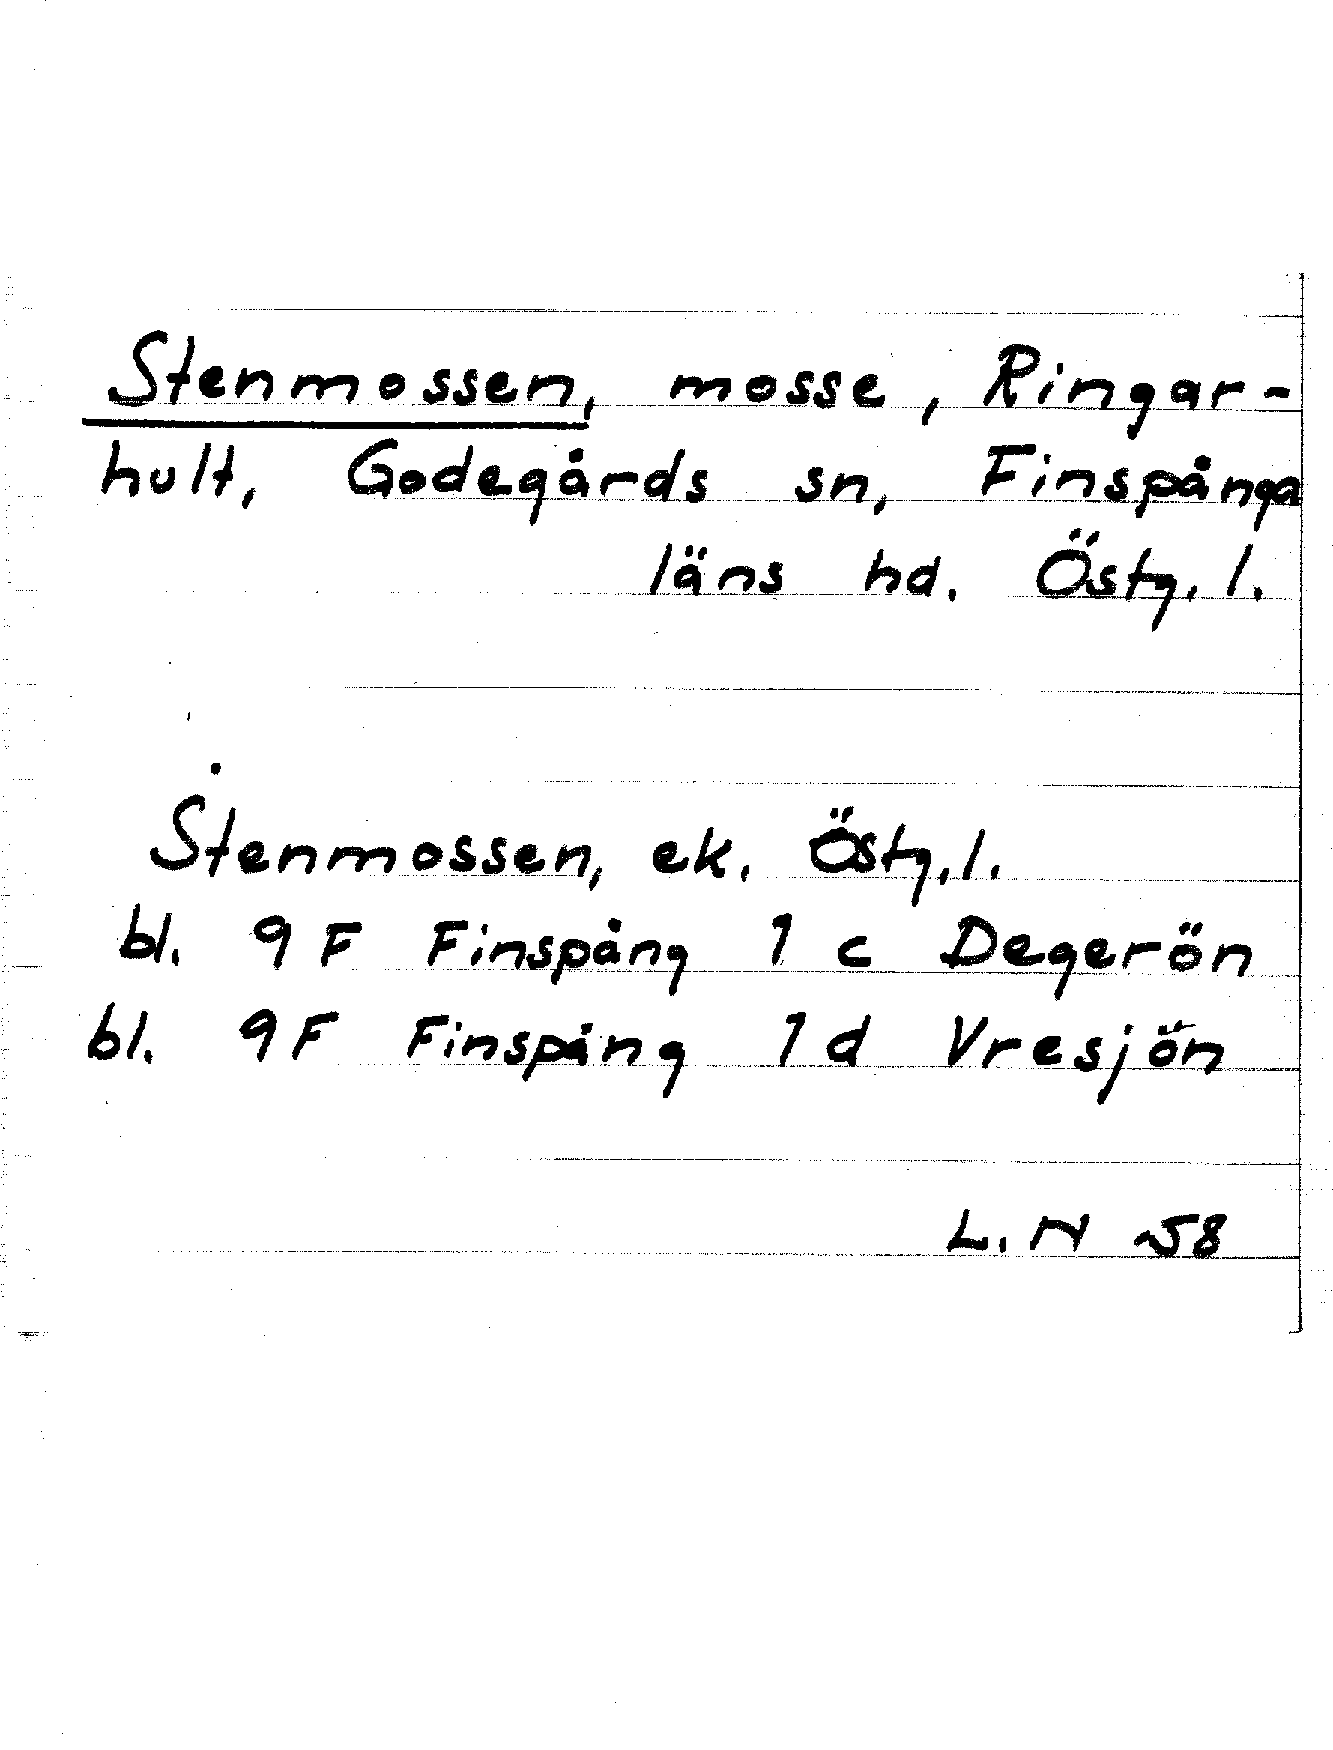 Stenmossen, mosse, Ringar-
hult, Godegårds sn, Finspånga
läns hd. Östg. l.
Stenmossen, ek. Östg. l.
bl. 9 F Finspång 1 c Degerön
bl. 9 F Finspång 1 d Vresjön
L. N -58